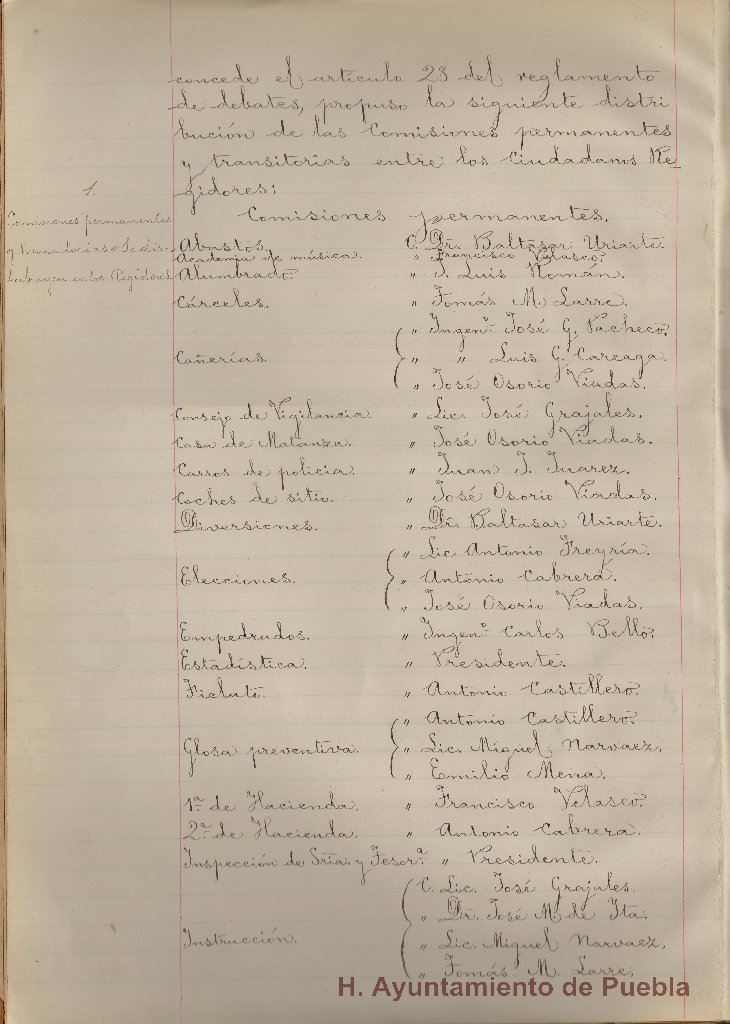 concede el artículo 23 del reglamento
de debates, propuso la siguiente distri
bución de las Comisiones permanentes
y transitorias entre los Ciudadanos Re-
gidores:
1.
Comisiones permanentes
y transitorias. Se dis-
tribuyen entre Regidores
Comisiones permanentes.
Abastos. C. Dr. Baltasar Uriarte.
Academia de música. " Francisco Velasco.
Alumbrado. " J. Luis Román.
Cárceles. " Tomás M. Larre.
" Ingen.º José G. Pacheco.
Cañerías. " " Luis G. Careaga.
" José Osorio Viadas.
Consejo de Vigilancia. " Lic. José Grajales.
Casa de Matanza. " José Osorio Viadas.
Carros de policía. " Juan J. Juarez.
Coches de sitio. " José Osorio Viadas.
Diversiones. " Dr. Baltasar Uriarte.
" Lic. Antonio Freyría.
Elecciones. " Antonio Cabrera.
" José Osorio Viadas.
Empedrados. " Ingen.º Carlos Bello.
Estadística. " Presidente.
Fielato. " Antonio Castillero.
" Antonio Castillero.
Glosa preventiva. " Lic. Miguel Narvaez.
" Emilio Mena.
1ª de Hacienda. " Francisco Velasco.
2ª de Hacienda. " Antonio Cabrera.
Inspección de Sría. y Tesor.ª " Presidente.
C. Lic. José Grajales.
" Dr. José M. de Ita.
Instrucción. " Lic. Miguel Narvaez.
" Tomás M. Larre.
H. Ayuntamiento de Puebla